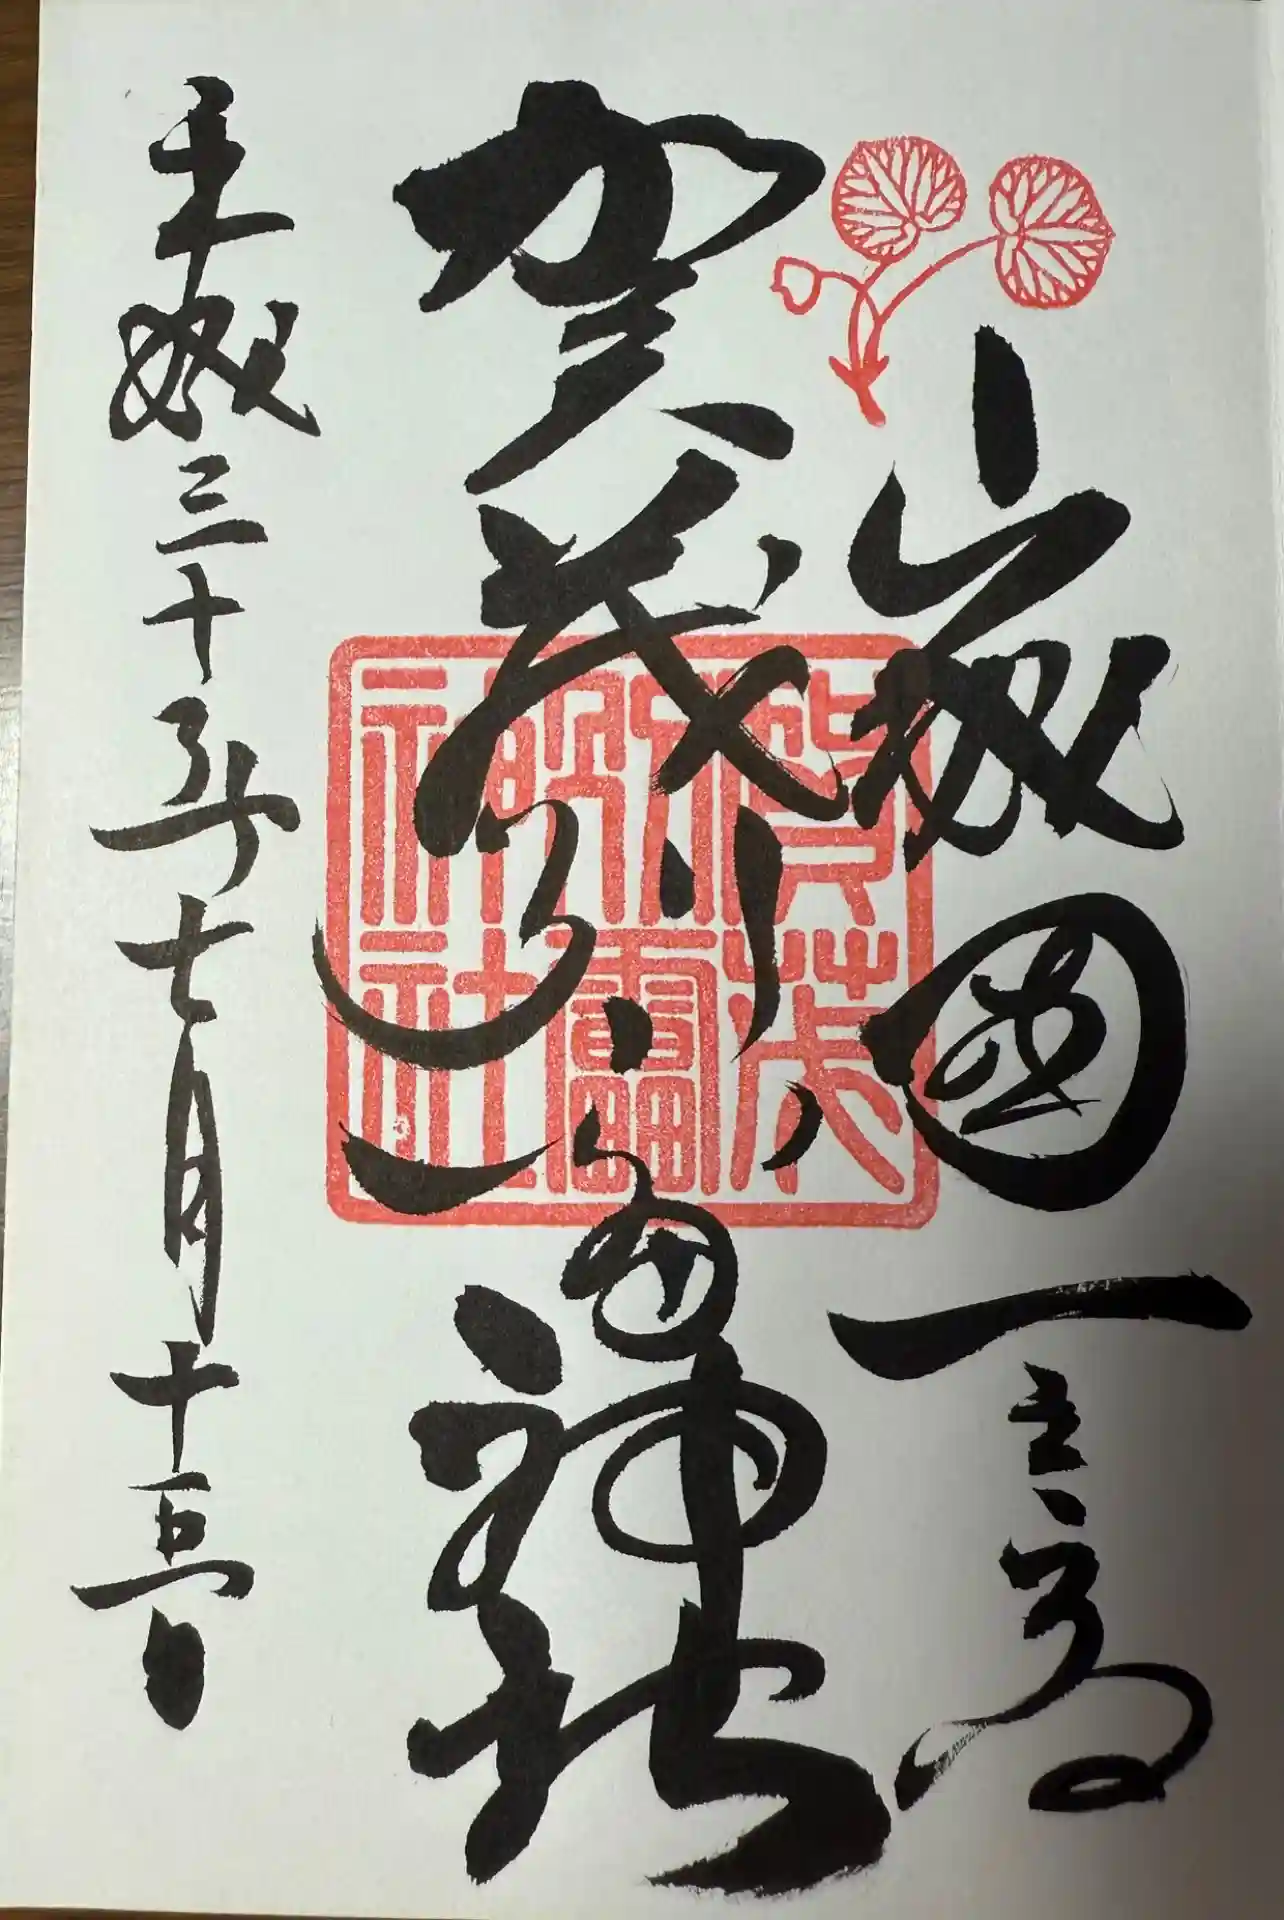 山城國一之宮
賀茂別雷神社
平成三十年七月十五日
賀茂
別雷
神社